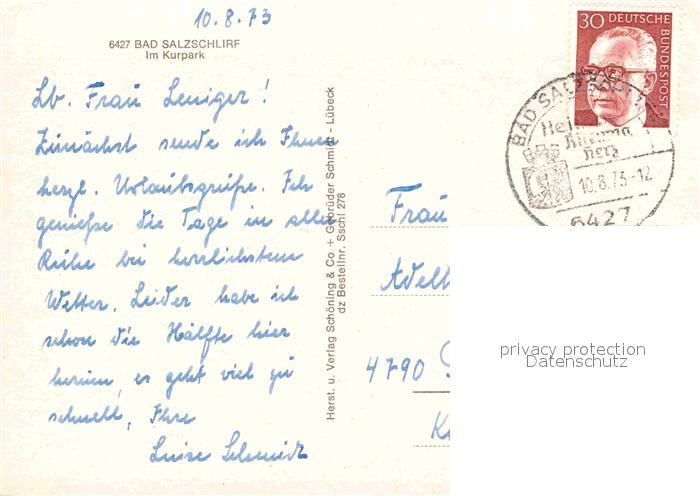 10.8.73
6427 BAD SALZSCHLIRF
Im Kurpark
Lb. Frau Leniger!
Zunächst sende ich Ihnen
herzl. Urlaubsgrüße. Ich
genieße die Tage in aller
Ruhe bei herrlichstem
Wetter. Leider habe ich
schon die Hälfte hier
herum, es geht viel zu
schnell, Ihre
Luise Schmidt
Herst. u. Verlag Schöning & Co + Gebrüder Schmidt - Lübeck
dz Bestellnr. Sschl 278
30 DEUTSCHE
BUNDESPOST
BAD SALZ
Rheuma
Herz
10.8.73-12
6427
Frau
Adelh
4790
privacy protection
Datenschutz